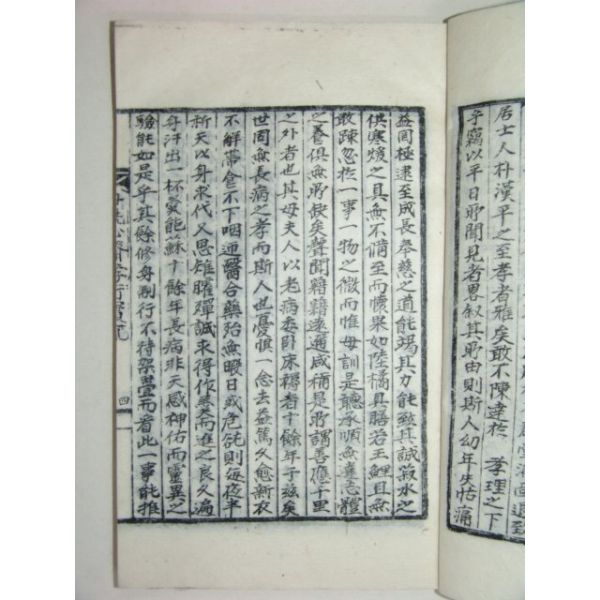 居士人朴漢平之至孝者雅矣敢不陳達於 孝理之下
乎竊以平日所聞見者畧叙其所由則斯人幼年失怙痛
益罔極逮至成長奉慈之道能竭其力能致其誠菽水之
供寒煖之具無不備至而懷果如陸橘具膳若王鯉且無
敢踈忽於一事一物之微而惟母訓是聽承順無違志體
之養俱無所缺矣聲聞籍籍遠邇咸稱是所謂善應千里
之外者也其母夫人以老病委臥床褥者十餘年于玆矣
世固無長病之孝而斯人也憂懼一念去益篤久愈新衣
不解帶食不下咽迎醫合藥殆無暇日或危㞃則每夜半
祈天以身求代又思雉膾殫誠求得作羹而進之良久遍
身汗出一杯羹能蘇十餘年長病非天感神佑而靈異之
驗能如是乎其餘修身制行不待架疊而着此一事能推
孝行實
四